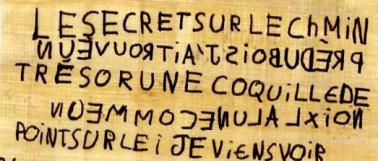 LESECRETSURLEChMiN
PREDUBOiST'AiTROUVEUN
TRESORUNECOQUiLLEDE
NOiXLALUNECOMMEUN
POiNTSURLEiJEViENSVOiR